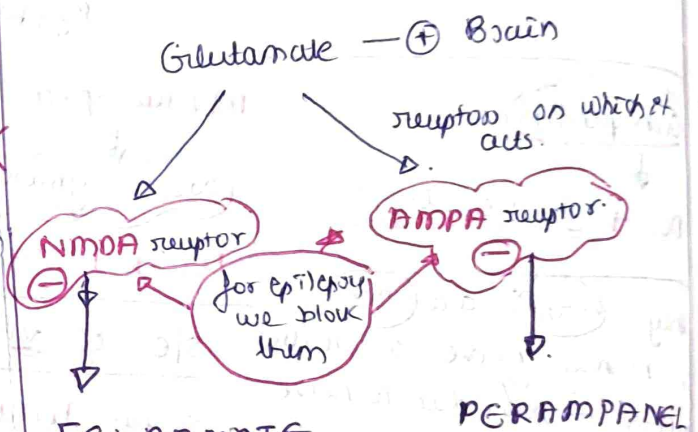 Glutamate — ⊕ Brain
receptors on which it
acts.
NMDA receptor
⊖
AMPA receptor.
⊖
for epilepsy
we block
them
PERAMPANEL